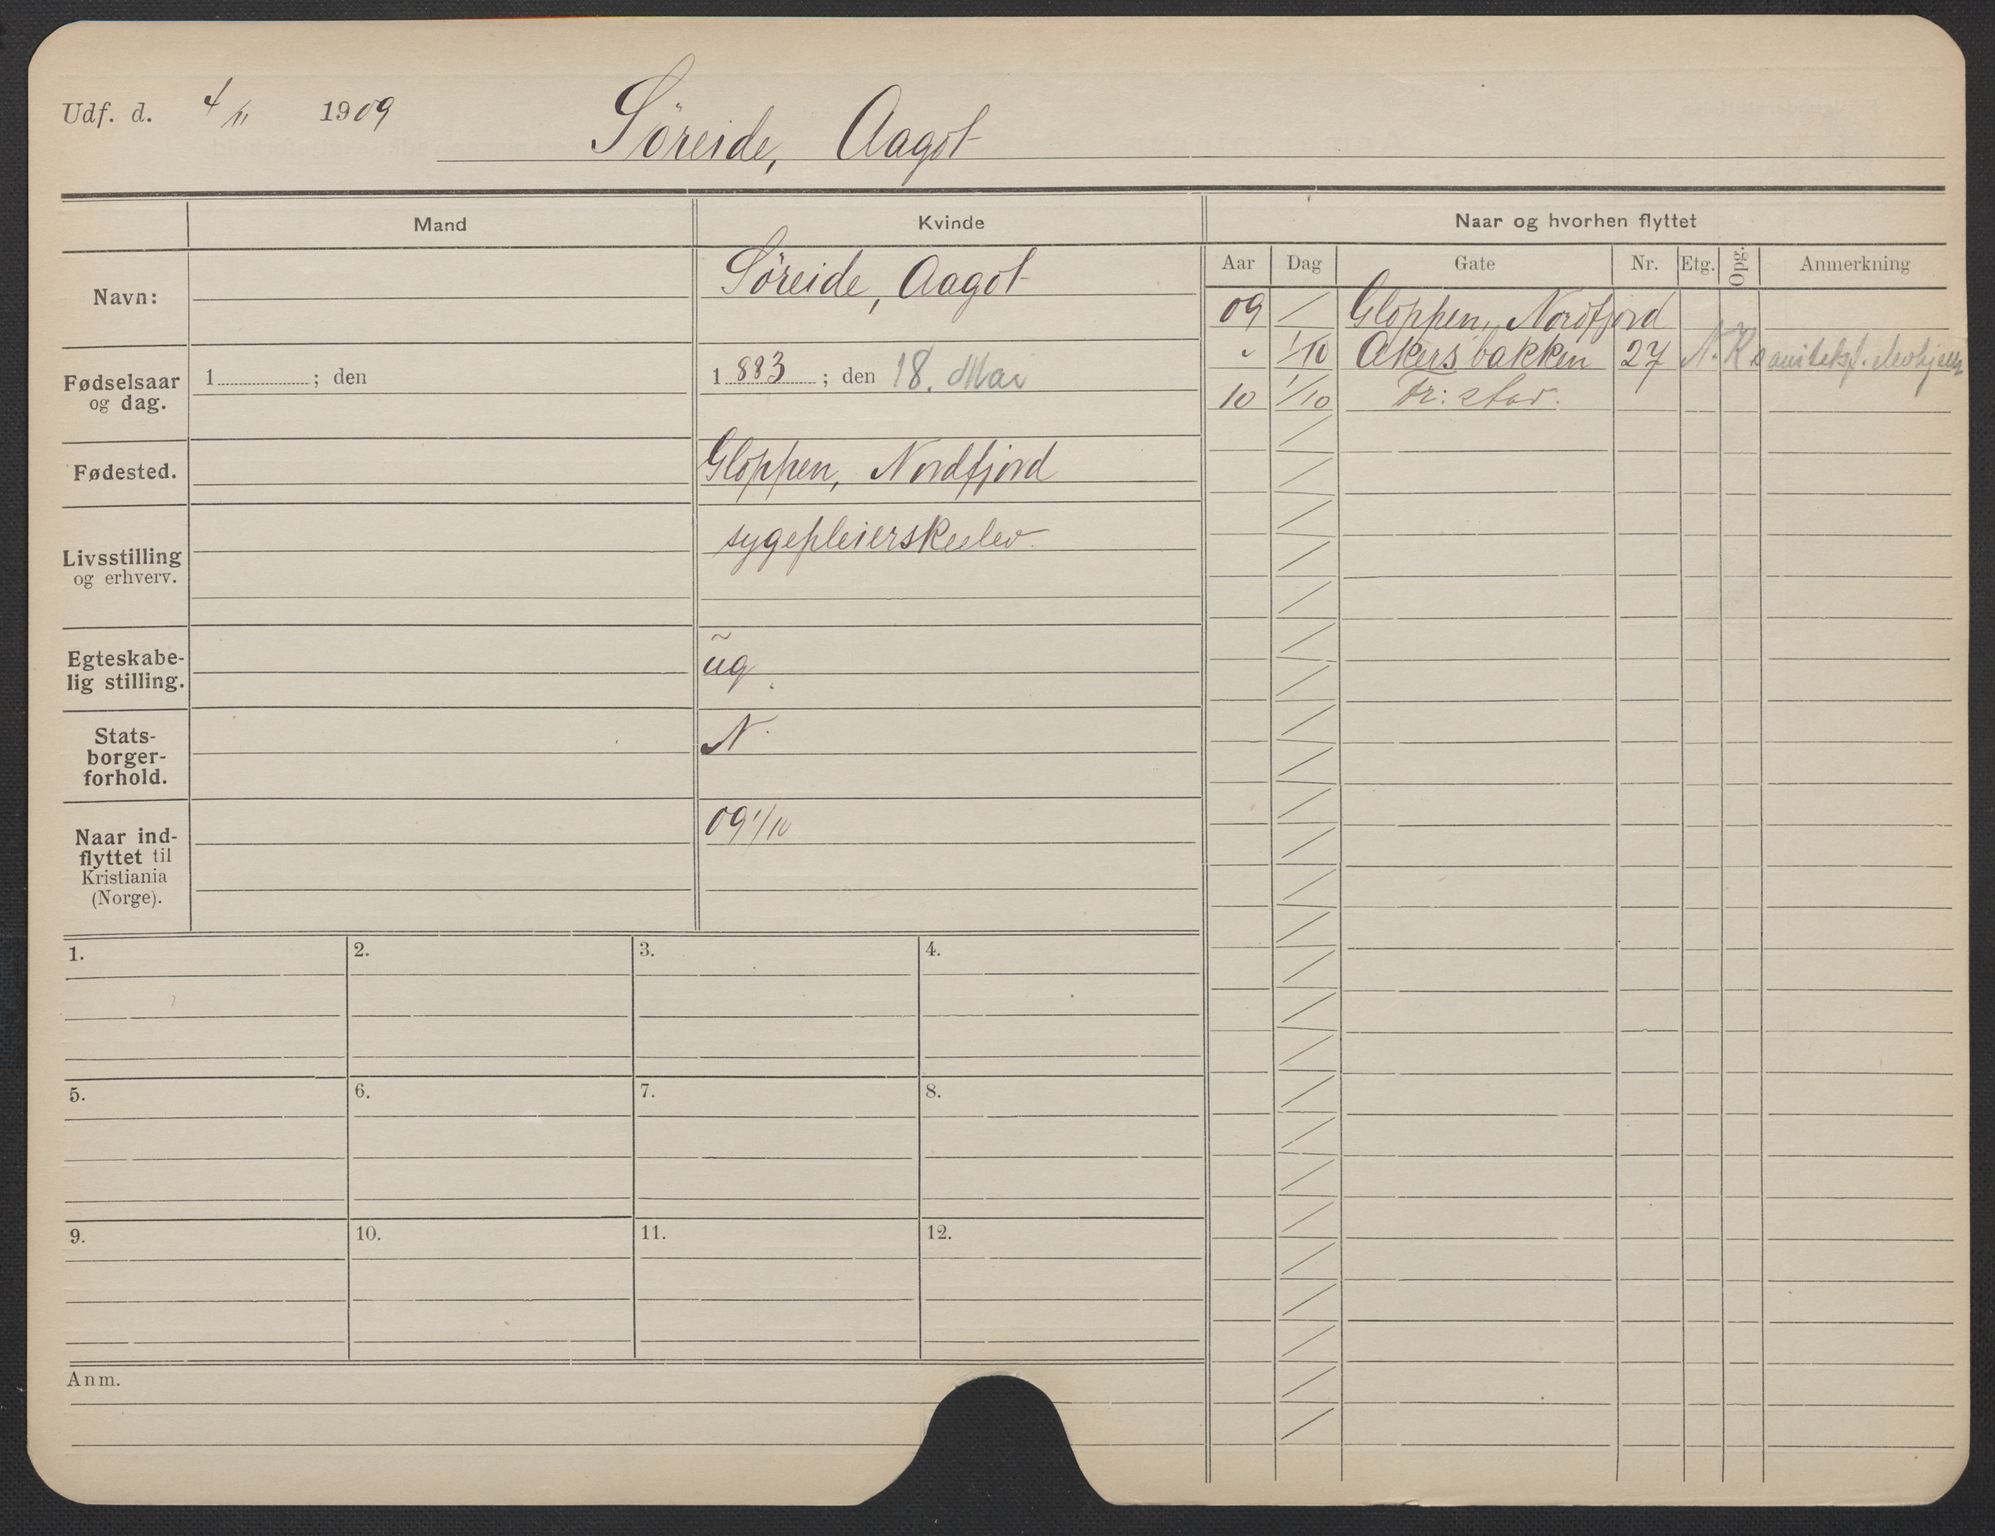 Udf. d. 4/11 1909 Søreide, Aagot
Mand Kvinde Naar og hvorhen flyttet
Aar Dag Gate Nr. Etg. Opg. Anmerkning
Navn: Søreide, Aagot
09 / Gloppen, Nordfjord
" 1/10 Akersbakken 27 N. K sanitetsf. elevhjem
10 1/10
Fødselsaar
og dag. 1 ; den 1883 ; den 18. Mai
Fødested. Gloppen, Nordfjord
Livsstilling
og erhverv. sygepleierskeelev.
Egteskabe-
lig stilling. ug.
Stats-
borger-
forhold. N.
Naar ind-
flyttet til
Kristiania
(Norge). 09 1/10
1. 2. 3. 4.
5. 6. 7. 8.
9. 10. 11. 12.
Anm.